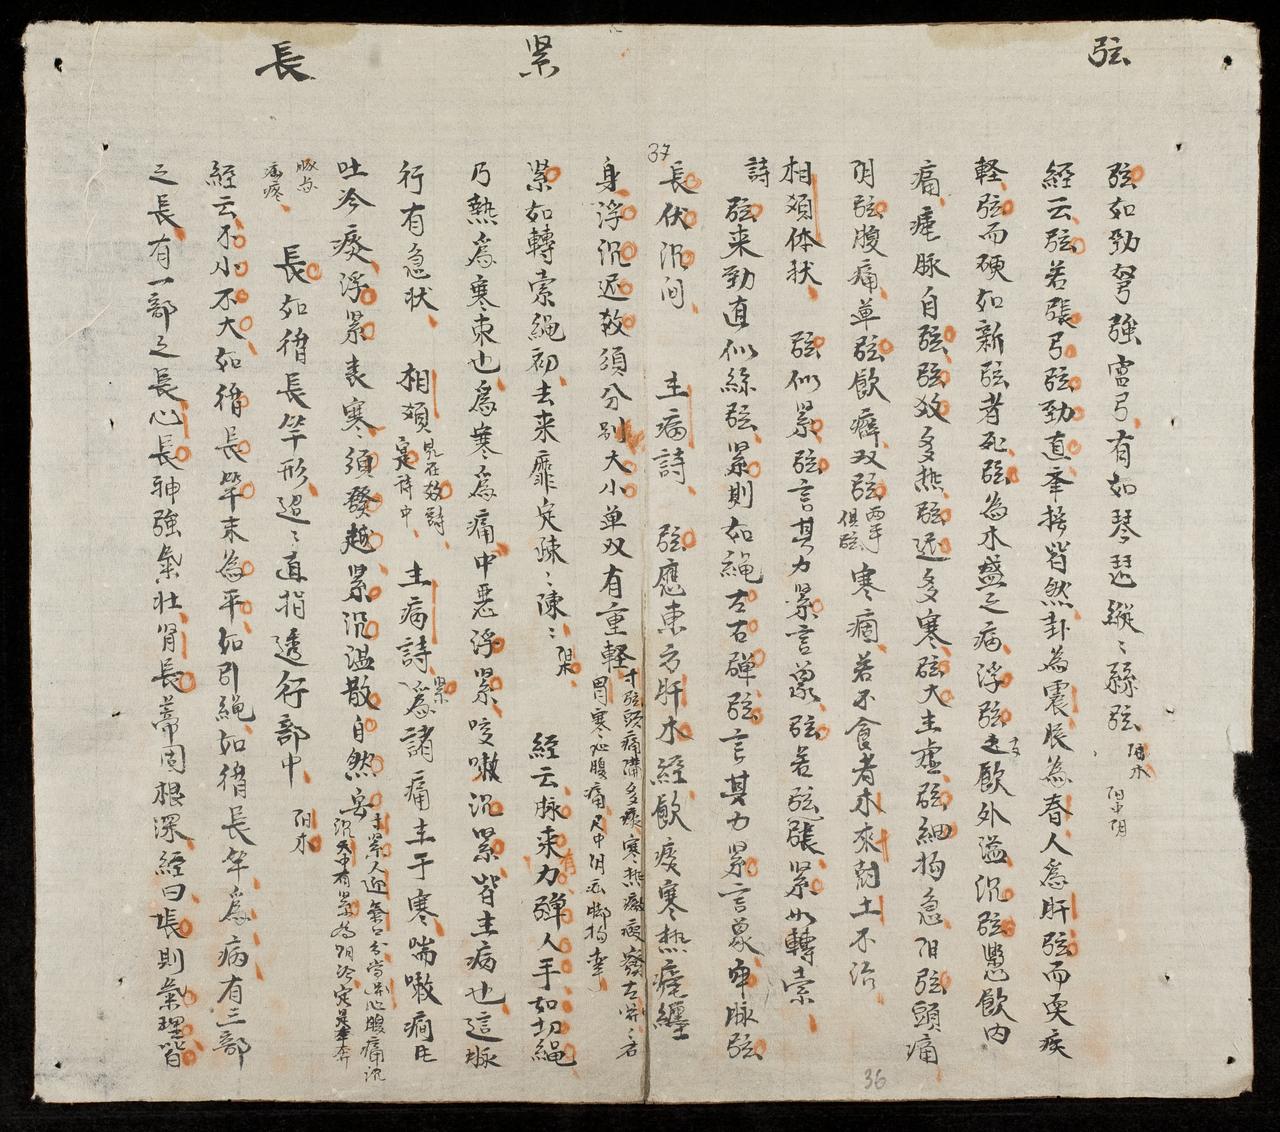 弦
緊
長
弦如勁弩強富弓有如琴瑟縱〻絲弦 陽木 陽中阴
經云弦若張弓弦勁直牽挨皆然卦為震辰為春人為肝弦而耎疾
軽弦而硬如新弦者死弦為木盛之病浮弦支歐外溢沉弦懸飲内
痛瘧脉自弦弦数多热弦迟多寒弦大主虚弦細拘急阳弦頭痛
阴弦腹痛单弦飲癖双弦 两手俱弦 寒痼若不食者木來尅土不治
相類体状 弦似緊弦言其力緊言象弦若弦張緊如轉索
詩 弦来勁直似絲弦緊則如繩左右弹弦言其力緊言象牢脉弦
37
長伏沉间 主病詩 弦應東方肝木經飲痰寒热瘧纏
身浮沉迟数須分别大小单双有重軽 寸弦頭痛膈多痰寒热癥瘕察左関若
胃寒心腹痛尺中阴疝脚拘牽
緊如轉索繩初去来靡定踈〻陳〻 阳木 經云脉来有力弹人手如切繩
乃熱為寒束也為寒為痛中恶浮緊咳嗽沉緊皆主病也這脉
行有急状 相類 見在数詩 寔詩中 主病詩 緊為諸痛主于寒喘嗽痫氏
吐冷痰浮緊表寒須發越緊沉温散自然安 寸緊人迎氣口分当関心腹痛沉
沉尺中有緊为阴冷定是奔
豚与
疝疼
長如循長竿形迢〻直指透行部中 阳木
經云不小不大如循長竿末為平如引繩如循長竿為病有三部
之長有一部之長心長神強氣壮肾長蒂固根深經曰長則氣理皆
36